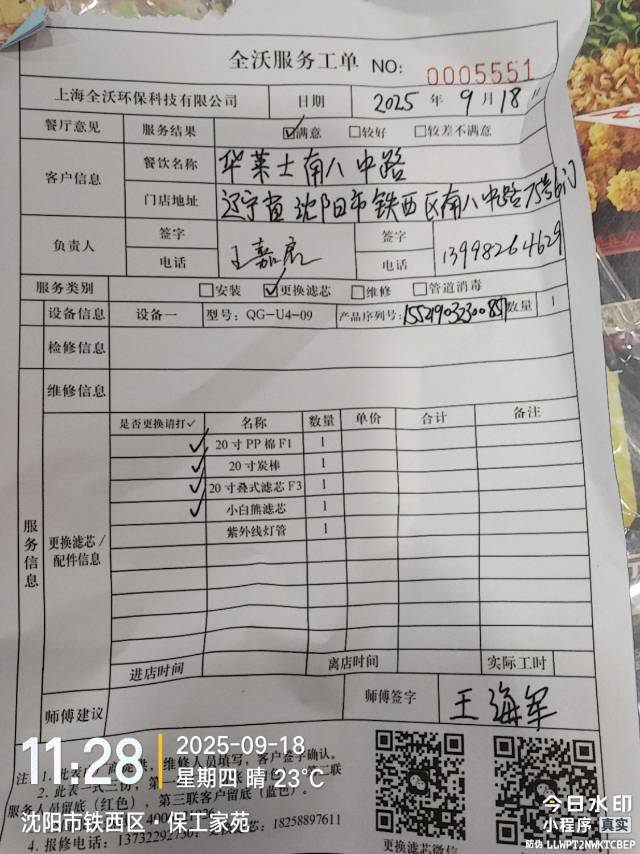 全沃服务工单 NO: 0005551
上海全沃环保科技有限公司 日期 2025 年 9 月 18 日
餐厅意见 服务结果 ☑满意 □较好 □较差不满意
客户信息 餐饮名称 华莱士南八中路
门店地址 辽宁省沈阳市铁西区南八中路75号6门
负责人 签字 王嘉 签字
电话 电话 13998264629
服务类别 □安装 ☑更换滤芯 □维修 □管道消毒
设备信息 设备一 型号: QG-U4-09 产品序列号: 数量 1
检修信息
维修信息
服务信息
更换滤芯/配件信息
是否更换请打✓ 名称 数量 单价 合计 备注
✓ 20寸PP棉F1 1
✓ 20寸炭棒 1
✓ 20寸叠式滤芯F3 1
✓ 小白熊滤芯 1
紫外线灯管 1
进店时间 离店时间 实际工时
师傅建议 师傅签字 王海军
注: 1. 此表由 提供, 维修人员填写, 客户签字确认。
2. 此表一式三份, 第一 第二联
服务人员留底（红色）, 第三联客户留底（蓝色）。
4. 报修电话: 18258897611
更换滤芯微信
11:28
2025-09-18
星期四 晴 23℃
沈阳市铁西区·保工家苑
今日水印
小程序 真实
防伪 LLWPT2NWKTCBEP